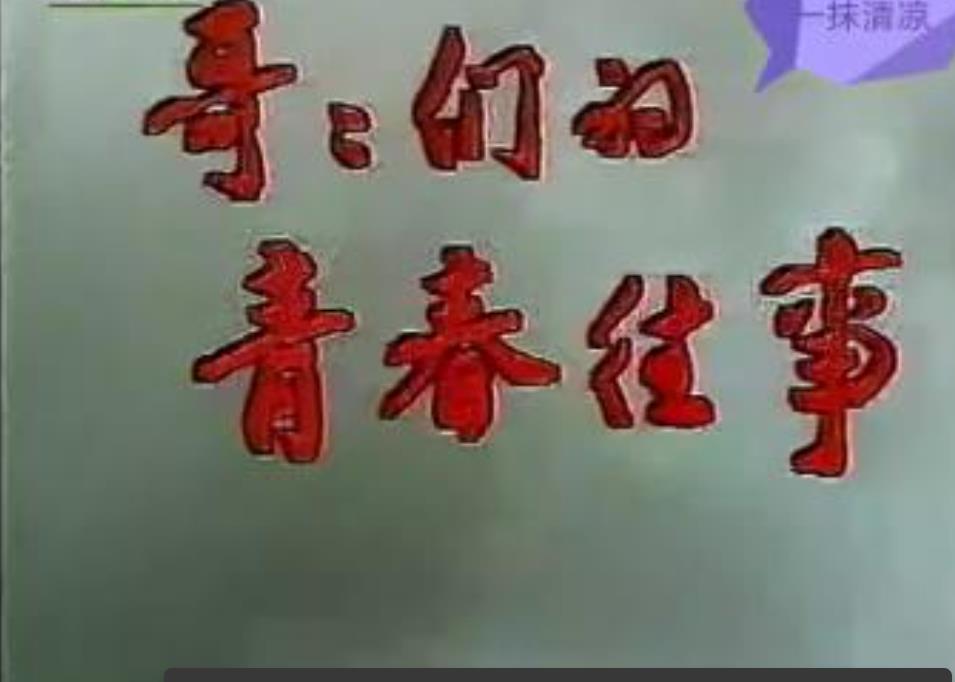 一抹清凉
哥：们的
青春往事